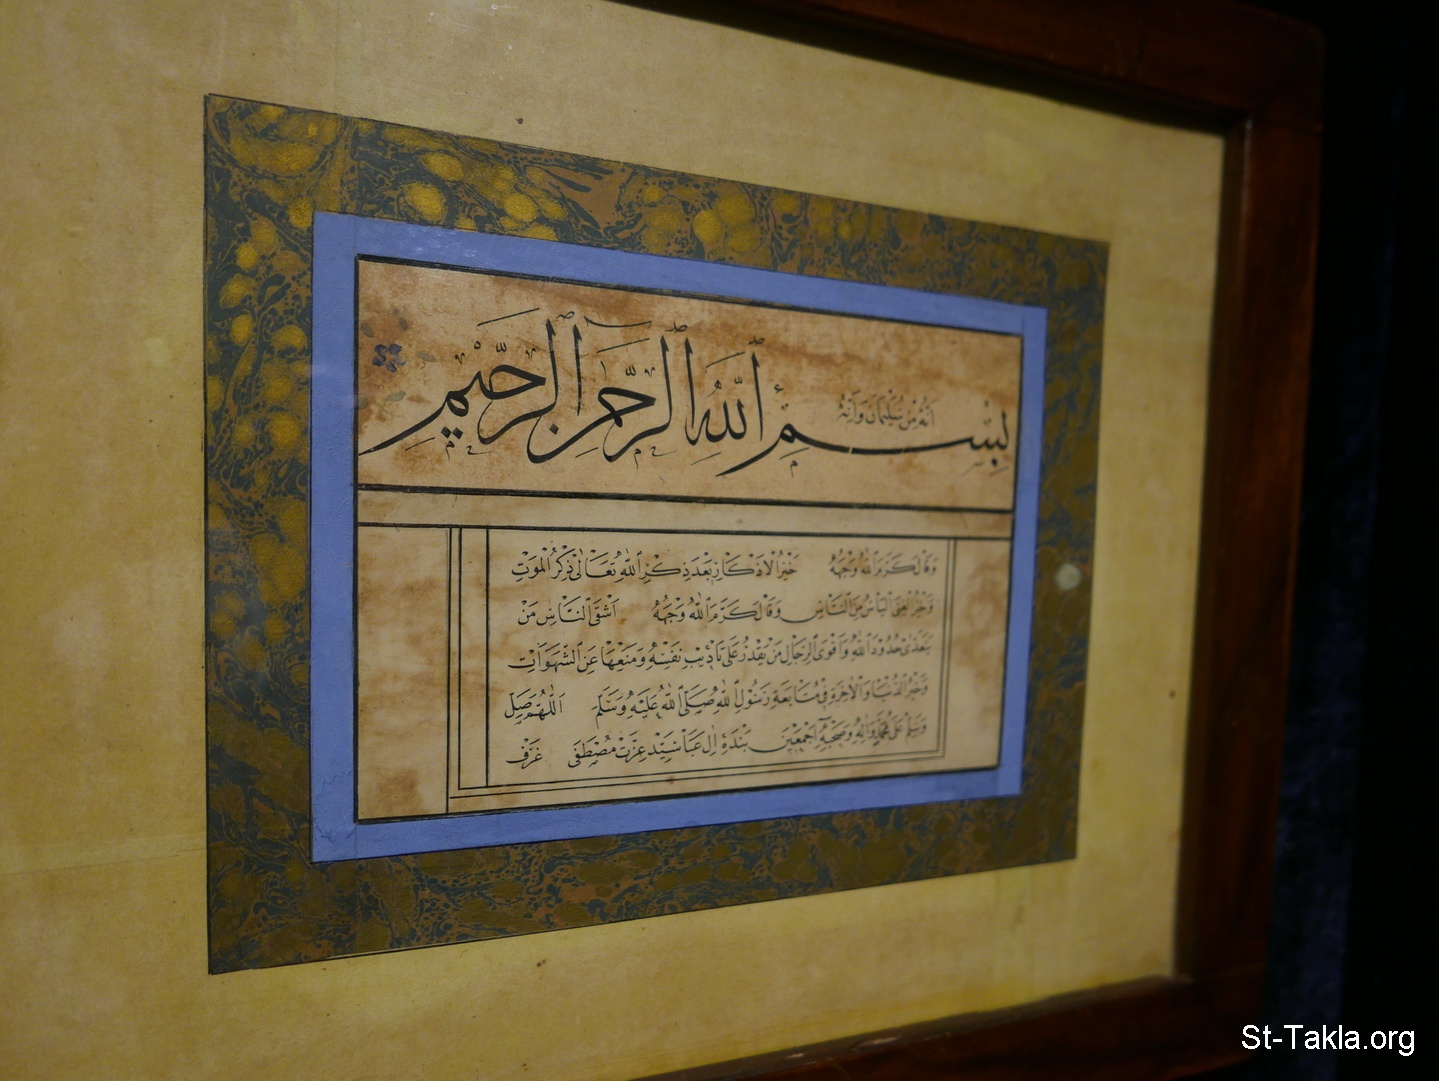 إنه من سليمان وإنه
بسم الله الرحمن الرحيم
وقال كرم الله وجهه خير الاذكار بعد ذكر الله تعالى ذكر الموت
وخير الغنى الياس من الناس وقال كرم الله وجهه اشقى الناس من
يتعدى حدود الله واقوى الرجال من يقدر على تاديب نفسه ومنعها عن الشهوات
وخير الدنيا والاخرة في متابعة رسول الله صلى الله عليه وسلم اللهم صل
وسلم على محمد واله وصحبه اجمعين بنده ال عبا سيد عزت مصطفى
St-Takla.org